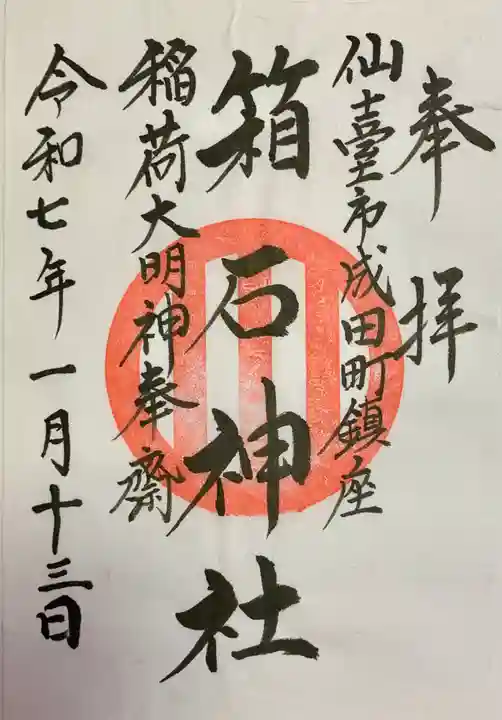 奉拝
仙臺市成田町鎮座
箱石神社
稲荷大明神奉齋
令和七年一月十三日